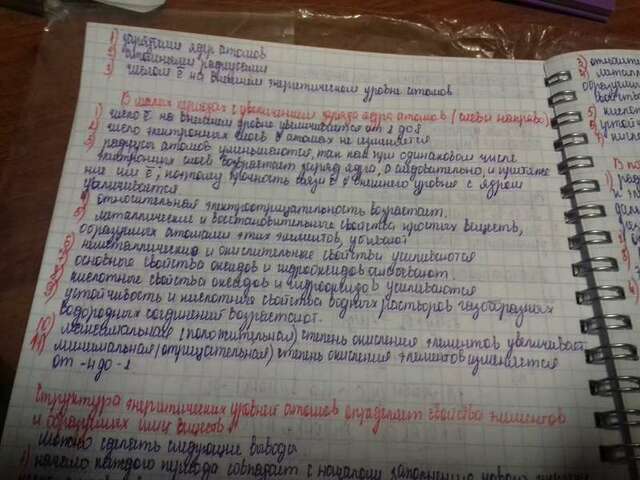 1) зарядами ядер атомов
2) атомными радиусами
3) числом ē на внешнем энергетическом уровне атомов
В малых периодах с увеличением заряда ядра атомов (слева направо)
1) число ē на внешнем уровне увеличивается от 1 до 8
2) число электронных слоев в атомах не изменяется
3) радиусы атомов уменьшаются, так как при одинаковом числе
электронных слоев возрастает заряд ядра, а следовательно, и притяже
ние им ē, поэтому прочность связи ē внешнего уровня с ядром
увеличивается
относительная электроотрицательность возрастает.
металлические и восстановительные свойства простых веществ,
образуемых атомами этих элементов, убывают
неметаллические и окислительные свойства усиливаются
основные свойства оксидов и гидроксидов ослабевают.
кислотные свойства оксидов и гидроксидов усиливаются
устойчивость и кислотные свойства водных растворов газообразных
водородных соединений возрастают.
максимальная (положительная) степень окисления элементов увеличивает
минимальная (отрицательная) степень окисления элементов изменяется
от -4 до -1
Структура энергетических уровней атомов определяет свойства элементов
и образуемых ими веществ
Можно сделать следующие выводы
1) начало каждого периода совпадает с началом заполнения нового
3)
метал
образуем
свойства
5) кислот
6) устойч
7)
В
1)